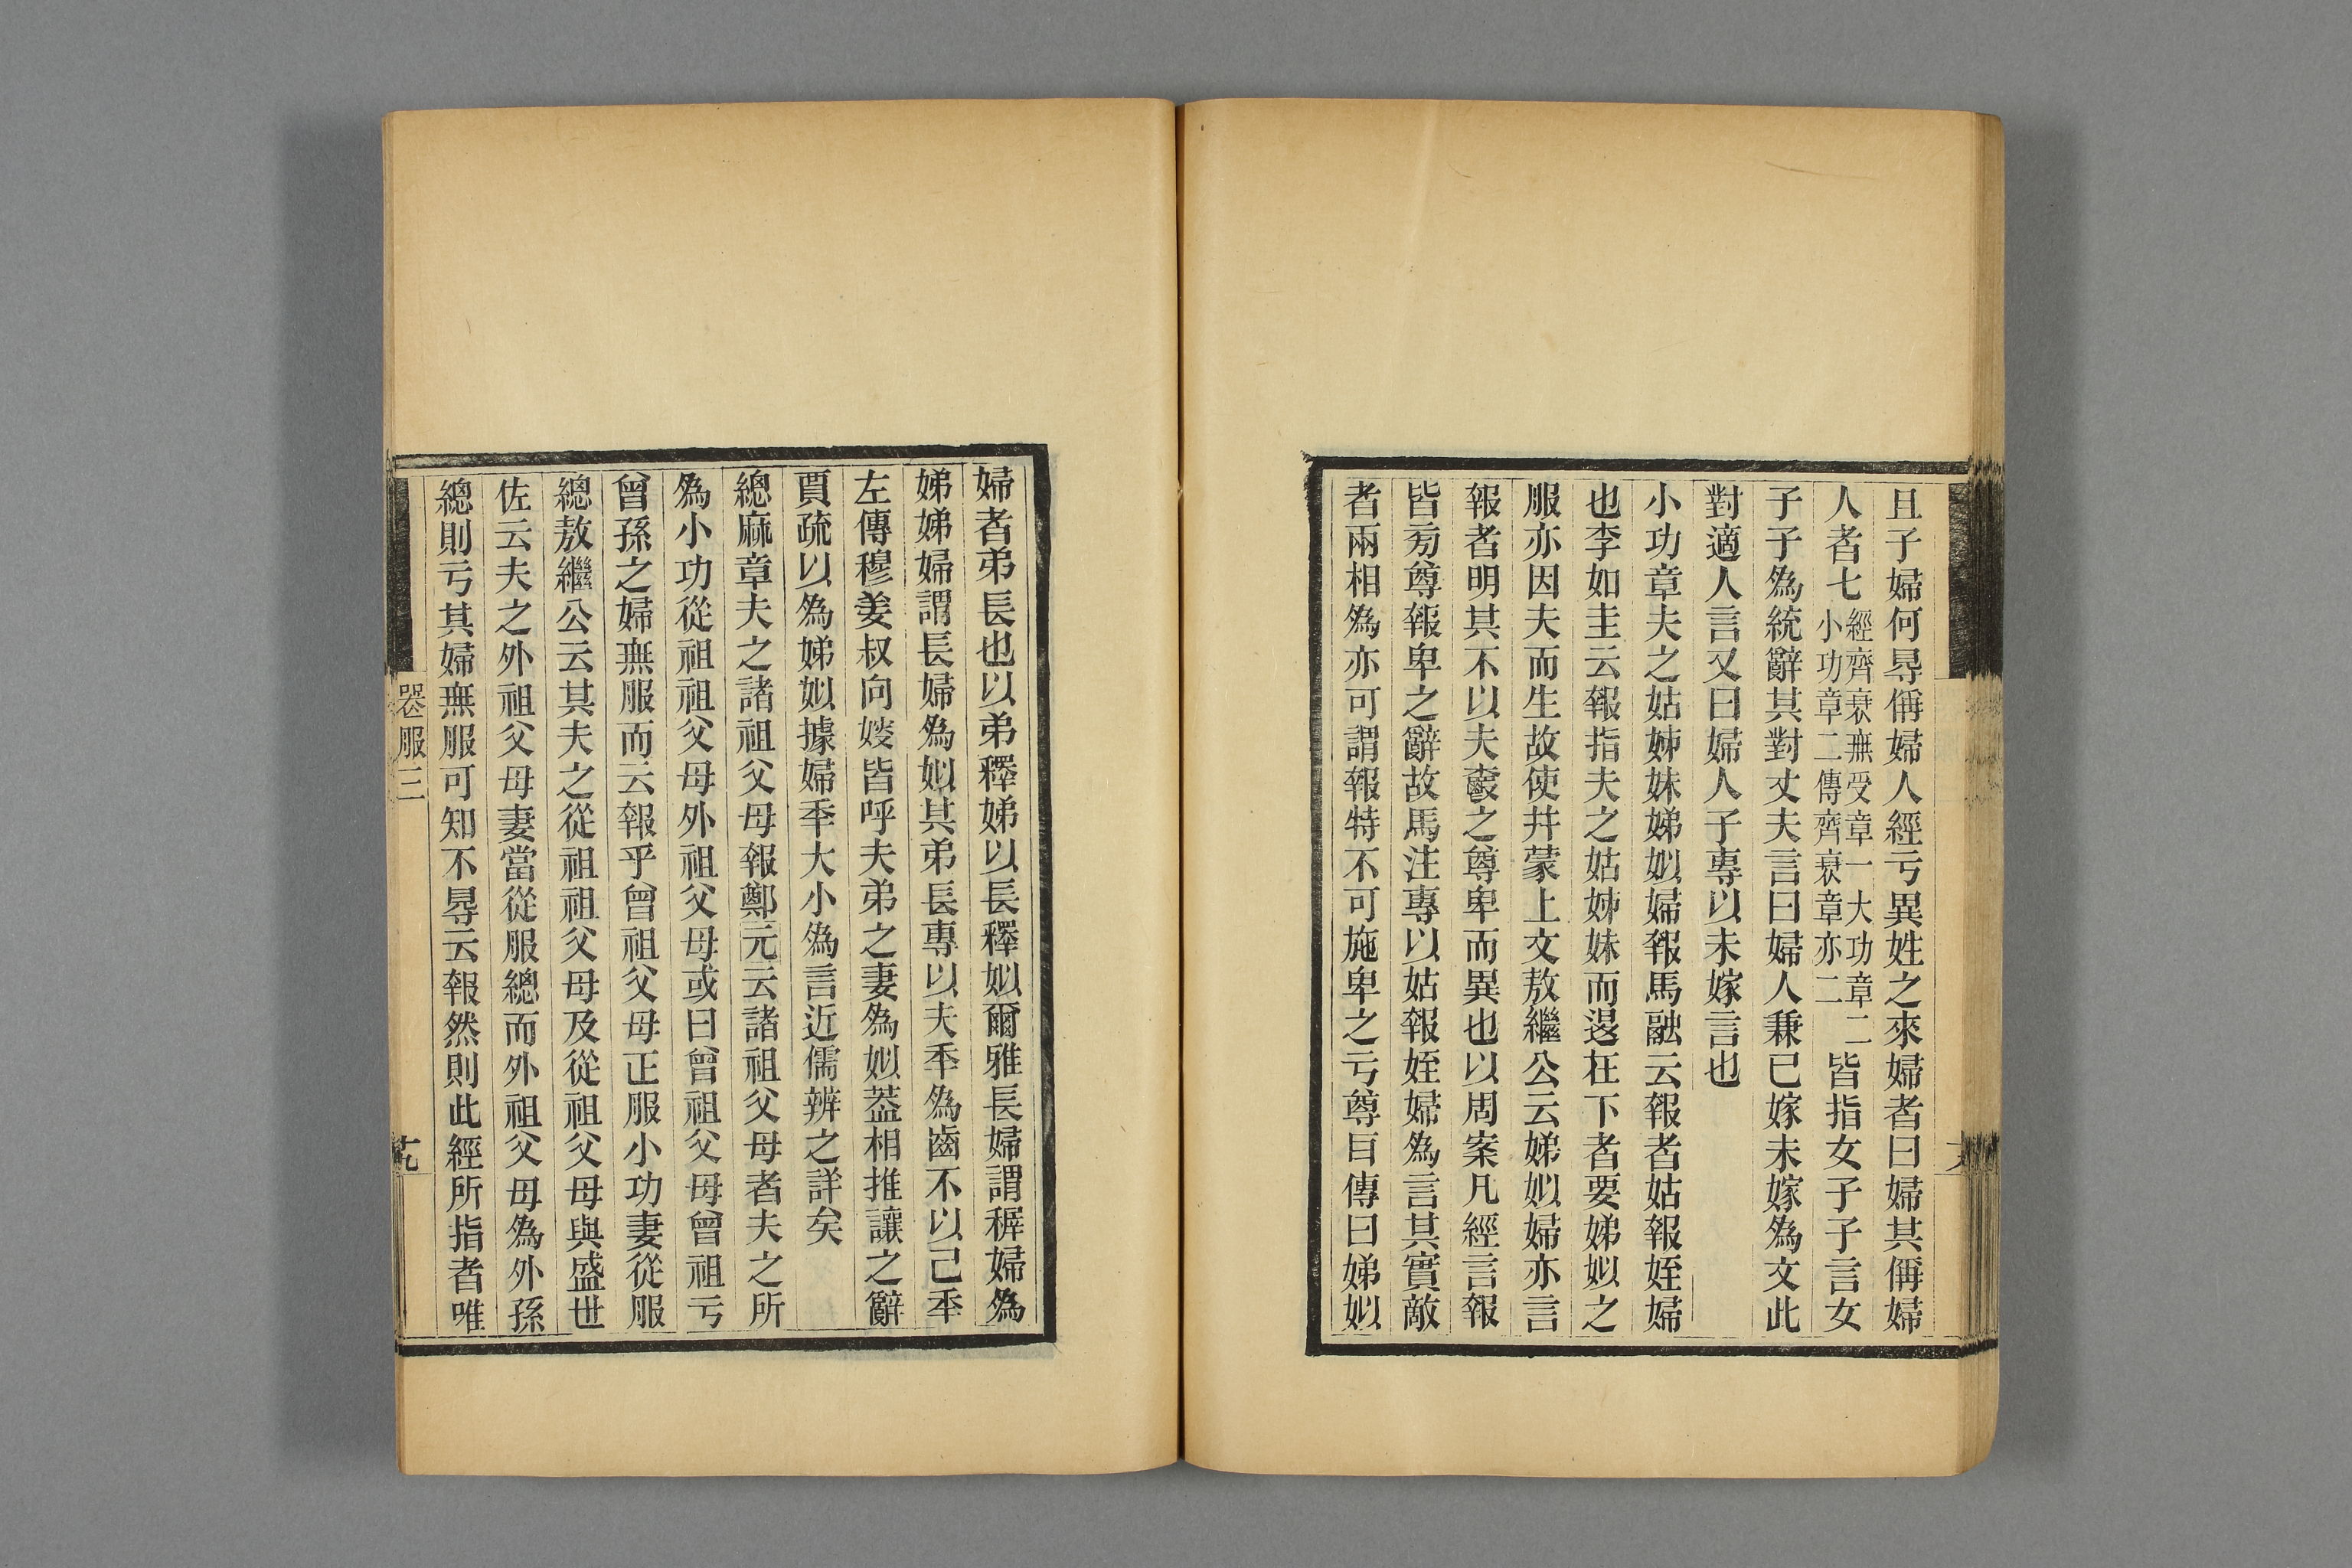 且子婦何㝵偁婦人經亏異姓之來婦者曰婦其偁婦
人者七經齊衰無受章一大功章二小功章二傳齊衰章亦二皆指女子子言女
子子為統辭其對丈夫言曰婦人兼已嫁未嫁為文此
對適人言又曰婦人子專以未嫁言也
小功章夫之姑姊妹娣姒婦報馬融云報者姑報姪婦
也李如圭云報指夫之姑姊妹而退在下者要娣姒之
服亦因夫而生故使幷蒙上文敖繼公云娣姒婦亦言
報者明其不以夫之尊卑而異也以周案凡經言報
皆㫄尊報卑之辭故馬注專以姑報姪婦為言其實敵
者兩相為亦可謂報特不可施卑之亏尊㠯傳曰娣姒
婦者弟長也以弟釋娣以長釋姒爾雅長婦謂稺婦為
娣娣婦謂長婦為姒其弟長專以夫秊為齒不以己秊
左傳穆姜叔向嫂皆呼夫弟之妻為姒葢相推讓之辭
賈疏以為娣姒據婦秊大小為言近儒辨之詳矣
緦麻章夫之諸祖父母報鄭元云諸祖父母者夫之所
為小功從祖祖父母外祖父母或曰曾祖父母曾祖亏
曾孫之婦無服而云報乎曾祖父母正服小功妻從服
緦敖繼公云其夫之從祖祖父母及從祖父母與盛世
佐云夫之外祖父母妻當從服緦而外祖父母為外孫
緦則亏其婦無服可知不㝵云報然則此經所指者唯
喪服三
十九